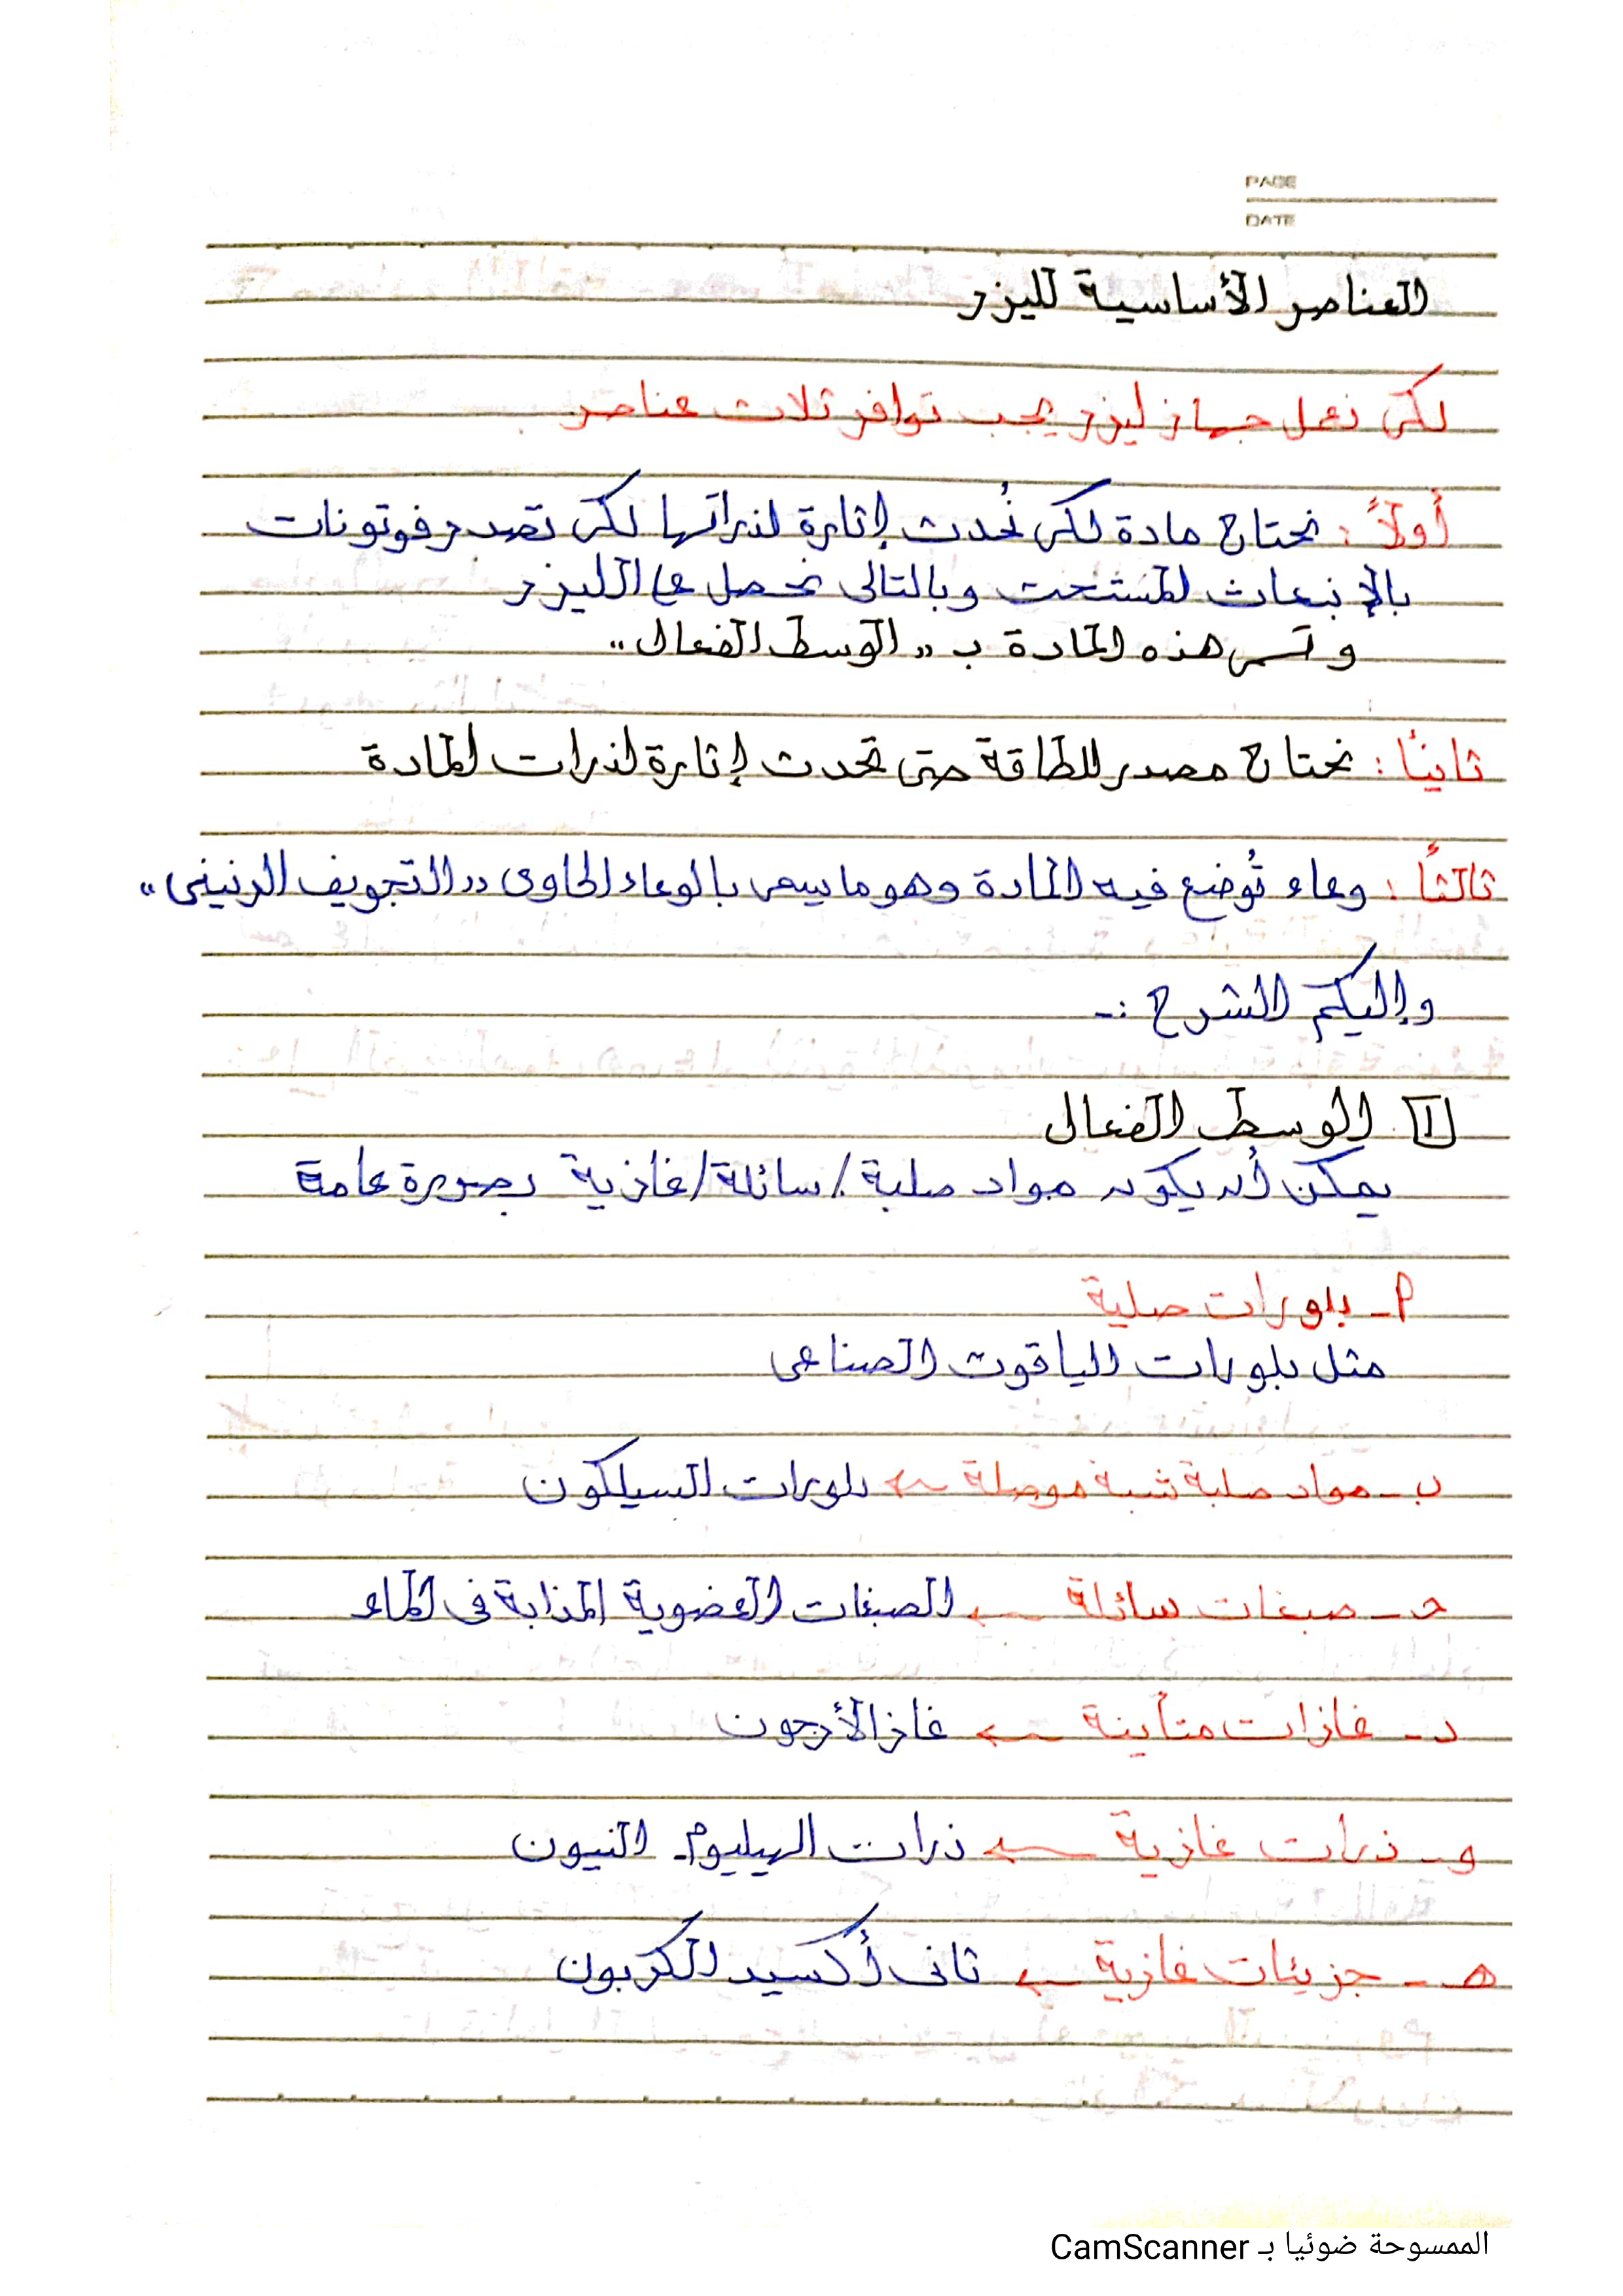 PAGE
DATE
العناصر الأساسية لليزر
لكى نعمل جهاز ليزر يجب توافر ثلاث عناصر
أولاً : نحتاج مادة لكى نُحدث إثارة لذراتها لكى تصدر فوتونات
بالإنبعاث المستحث وبالتالى نحصل على الليزر
وتسمى هذه المادة ب "الوسط الفعال"
ثانيًا : نحتاج مصدر للطاقة حتى تحدث إثارة لذرات المادة
ثالثًا : وعاء تُوضع فيه المادة وهو ما يسمى بالوعاء الحاوى "التجويف الرنينى"
وإليكم الشرح :-
1 الوسط الفعال
يمكن أن يكون مواد صلبة / سائلة / غازية بصورة عامة
أ - بلورات صلبة
مثل بلورات الياقوت الصناعى
ب - مواد صلبة شبة موصلة ← بلورات السيلكون
حـ - صبغات سائلة ← الصبغات العضوية المذابة فى الماء
د - غازات متأينة ← غاز الأرجون
و - ذرات غازية ← ذرات الهيليوم - النيون
هـ - جزيئات غازية ← ثانى أكسيد الكربون
الممسوحة ضوئيا بـ CamScanner